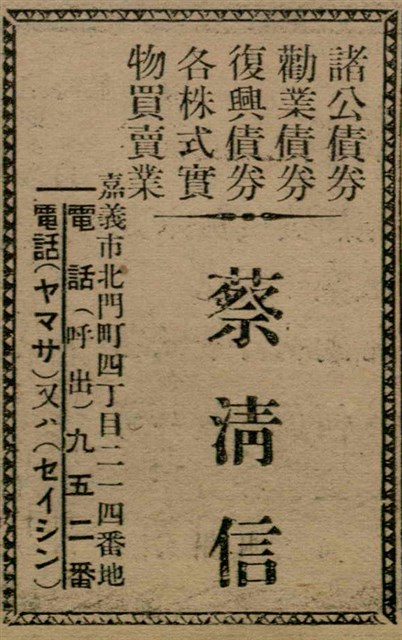 諸公債券
勸業債券
復興債券
各株式實
物買賣業
蔡清信
嘉義市北門町四丁目二一四番地
電話（呼出）九五二番
電話（ヤマサ）又ハ（セイシン）